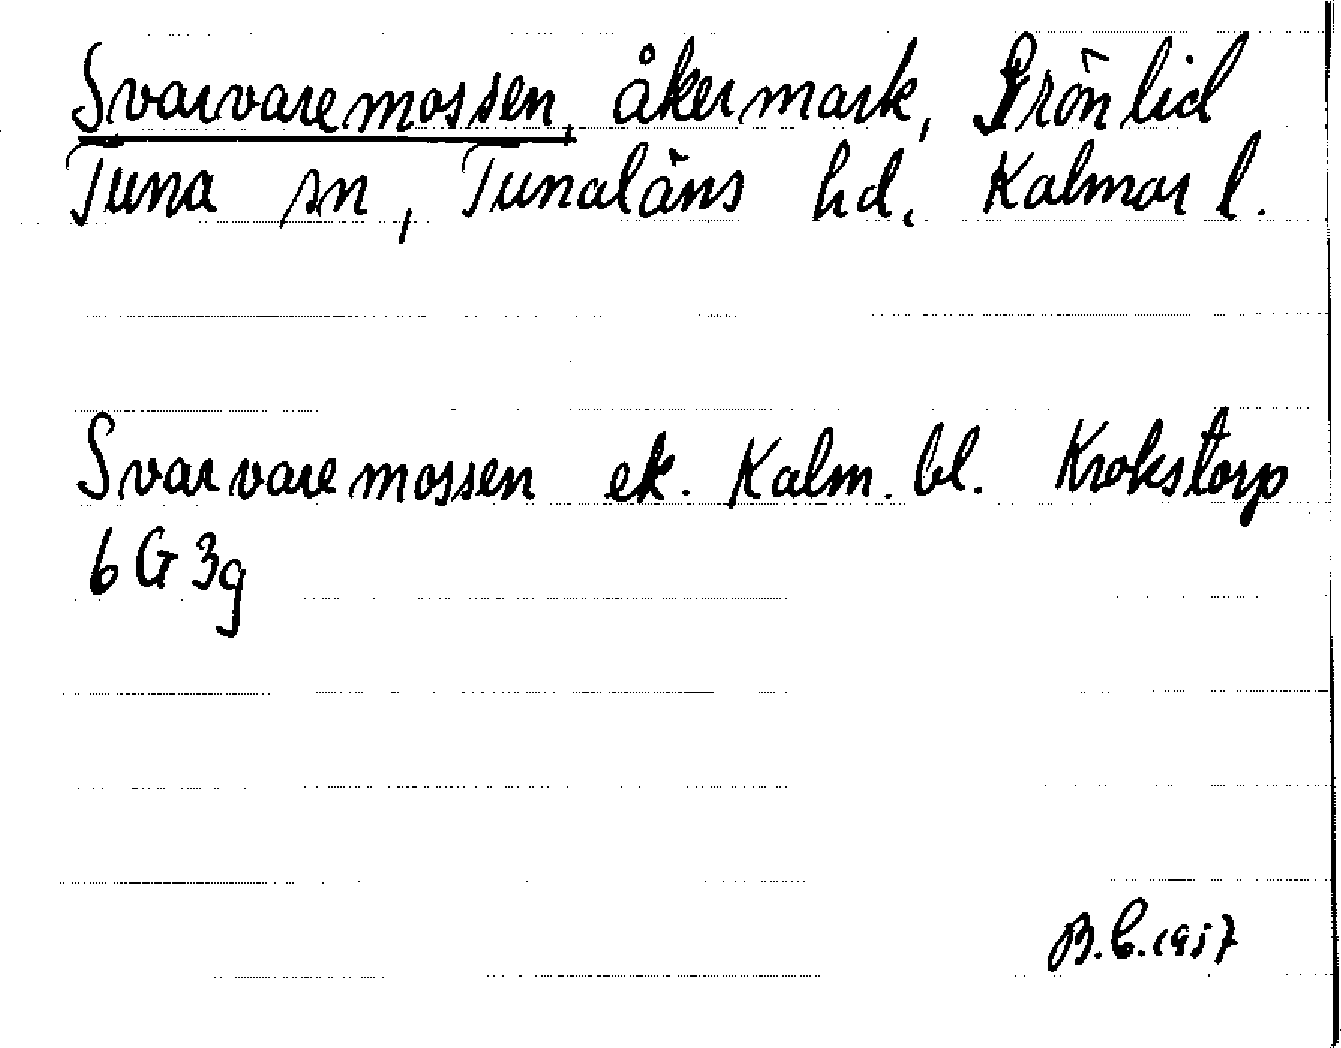 Svarvaremossen, åkermark, Prönlid
Tuna sn, Tunaläns hd, Kalmar l.
Svarvaremossen ek. Kalm. bl. Krokstorp
6 G 3g
B.C. 1957